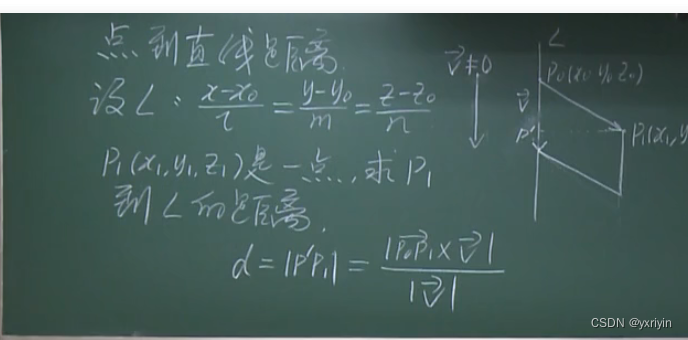 点到直线距离.
设L: (x-x₀)/l = (y-y₀)/m = (z-z₀)/n
P₁(x₁,y₁,z₁)是一点, 求P₁
到L的距离.
d = |P'P₁| = |P₀P₁⃗ × v⃗| / |v⃗|
v⃗≠0
L
P₀(x₀ y₀ z₀)
v⃗
P'
P₁(x₁,y
CSDN @yxriyin